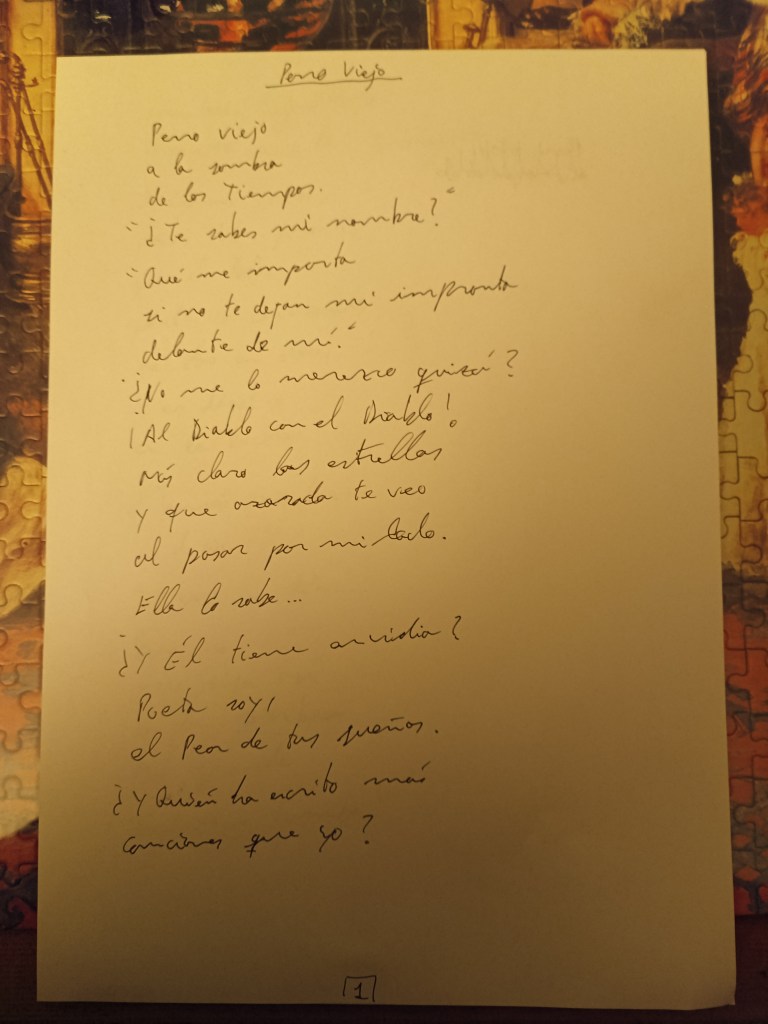 Perro Viejo
Perro viejo
a la sombra
de los Tiempos.
"¿Te sabes mi nombre?"
"Qué me importa
si no te dejan mi impronta
delante de mí."
"¿No me lo merezco quizá?
¡Al Diablo con el Diablo!
Más claro las estrellas
y que azorada te veo
al pasar por mi lado.
Ella lo sabe...
¿Y Él tiene envidia?
Poeta soy,
el Peor de tus sueños.
¿Y Quién ha escrito más
canciones que yo?
1